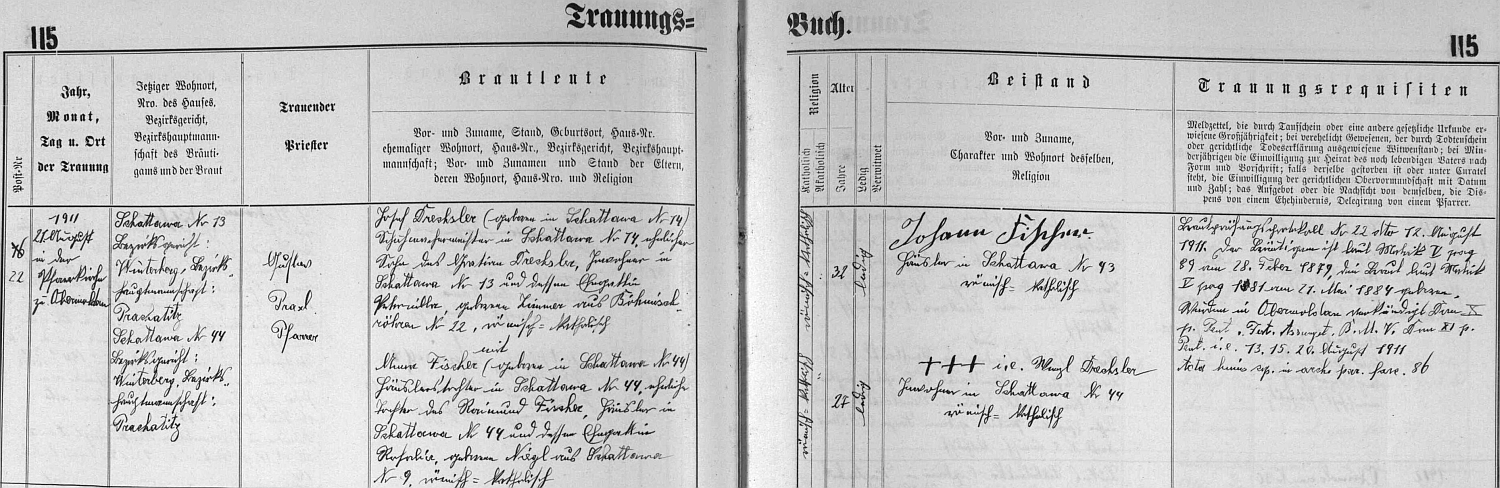 115
Trauungs=
Buch.
115
Post-Nr
Jahr,
Monat,
Tag u. Ort
der Trauung
Jetziger Wohnort,
Nro. des Hauses,
Bezirksgericht,
Bezirkshauptmann-
schaft des Bräuti-
gams und der Braut
Trauender
Priester
Brautleute
Vor- und Zuname, Stand, Geburtsort, Haus-Nr.
ehemaliger Wohnort, Haus-Nr., Bezirksgericht, Bezirkshaupt-
mannschaft; Vor- und Zunamen und Stand der Eltern,
deren Wohnort, Haus-Nro. und Religion
Religion
Katholisch
Akatholisch
Alter
Jahre
Ledig
Verwitwet
Beistand
Vor- und Zuname,
Charakter und Wohnort desselben,
Religion
Trauungsrequisiten
Meldzettel, die durch Taufschein oder eine andere gesetzliche Urkunde er-
wiesene Großjährigkeit; bei verehelicht Gewesenen, der durch Todtenschein
oder gerichtliche Todeserklärung ausgewiesene Witwenstand; bei Min-
derjährigen die Einwilligung zur Heirat des noch lebendigen Vaters nach
Form und Vorschrift; falls derselbe gestorben ist oder unter Curatel
steht, die Einwilligung der gerichtlichen Obervormundschaft mit Datum
und Zahl; das Aufgebot oder die Nachsicht von demselben, die Dis-
pens von einem Ehehindernis, Delegirung von einem Pfarrer.
22
1911
21. August
in der
Pfarrkirche
zu Obermoldau
Schattawa Nr 13
Bezirksgericht:
Winterberg, Bezirks-
hauptmannschaft:
Prachatitz
Schattawa Nr 44
Bezirksgericht:
Winterberg, Bezirks-
hauptmannschaft:
Prachatitz
Gustav
Pfarrer
Josef Drechsler (geboren in Schattawa Nr 14)
in Schattawa Nr 14, ehelicher
Sohn des Gratian Drechsler, Inwohner in
Schattawa Nr 13 und dessen Ehegattin
Petronilla, geborene Zimmer aus Böhmisch-
röhren Nr 22, römisch=katholisch
mit
Anna Fischer (geboren in Schattawa Nr 44)
Häuslerstochter in Schattawa Nr 44, eheliche
Tochter des Raimund Fischer, Häusler in
Schattawa Nr 44 und dessen Ehegattin
Rosalia, geborene aus Schattawa
Nr 9, römisch=katholisch
32
ledig
27
ledig
Johann Fischer.
Häusler in Schattawa Nr 43
römisch=katholisch
+++ i.e. Wenzl Drechsler
Inwohner in Schattawa Nr 44
römisch=katholisch
Brautprüfungsprotokoll Nr 22 dto 12. August
1911. Der Bräutigam ist laut Matrik V pag
89 am 28. Feber 1879, die Braut laut Matrik
V pag 181 am 21. Mai 1884 geboren.
Wurden in Obermoldau verkündigt Dom X
p. Pent., Fest. Assumpt. B.M.V., Dom XI p.
Pent. i.e. 13. 15. 20. August 1911
Acta in arch. par. fasc. 86